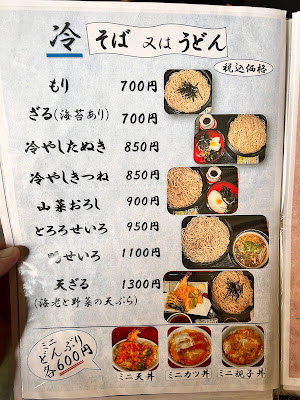 冷 そば 又は うどん
税込価格
もり 700円
ざる(海苔あり) 700円
冷やしたぬき 850円
冷やしきつね 850円
山菜おろし 900円
とろろせいろ 950円
せいろ 1100円
天ざる 1300円
(海老と野菜の天ぷら)
ミニ
どんぶり
各600円
ミニ天丼 ミニカツ丼 ミニ親子丼